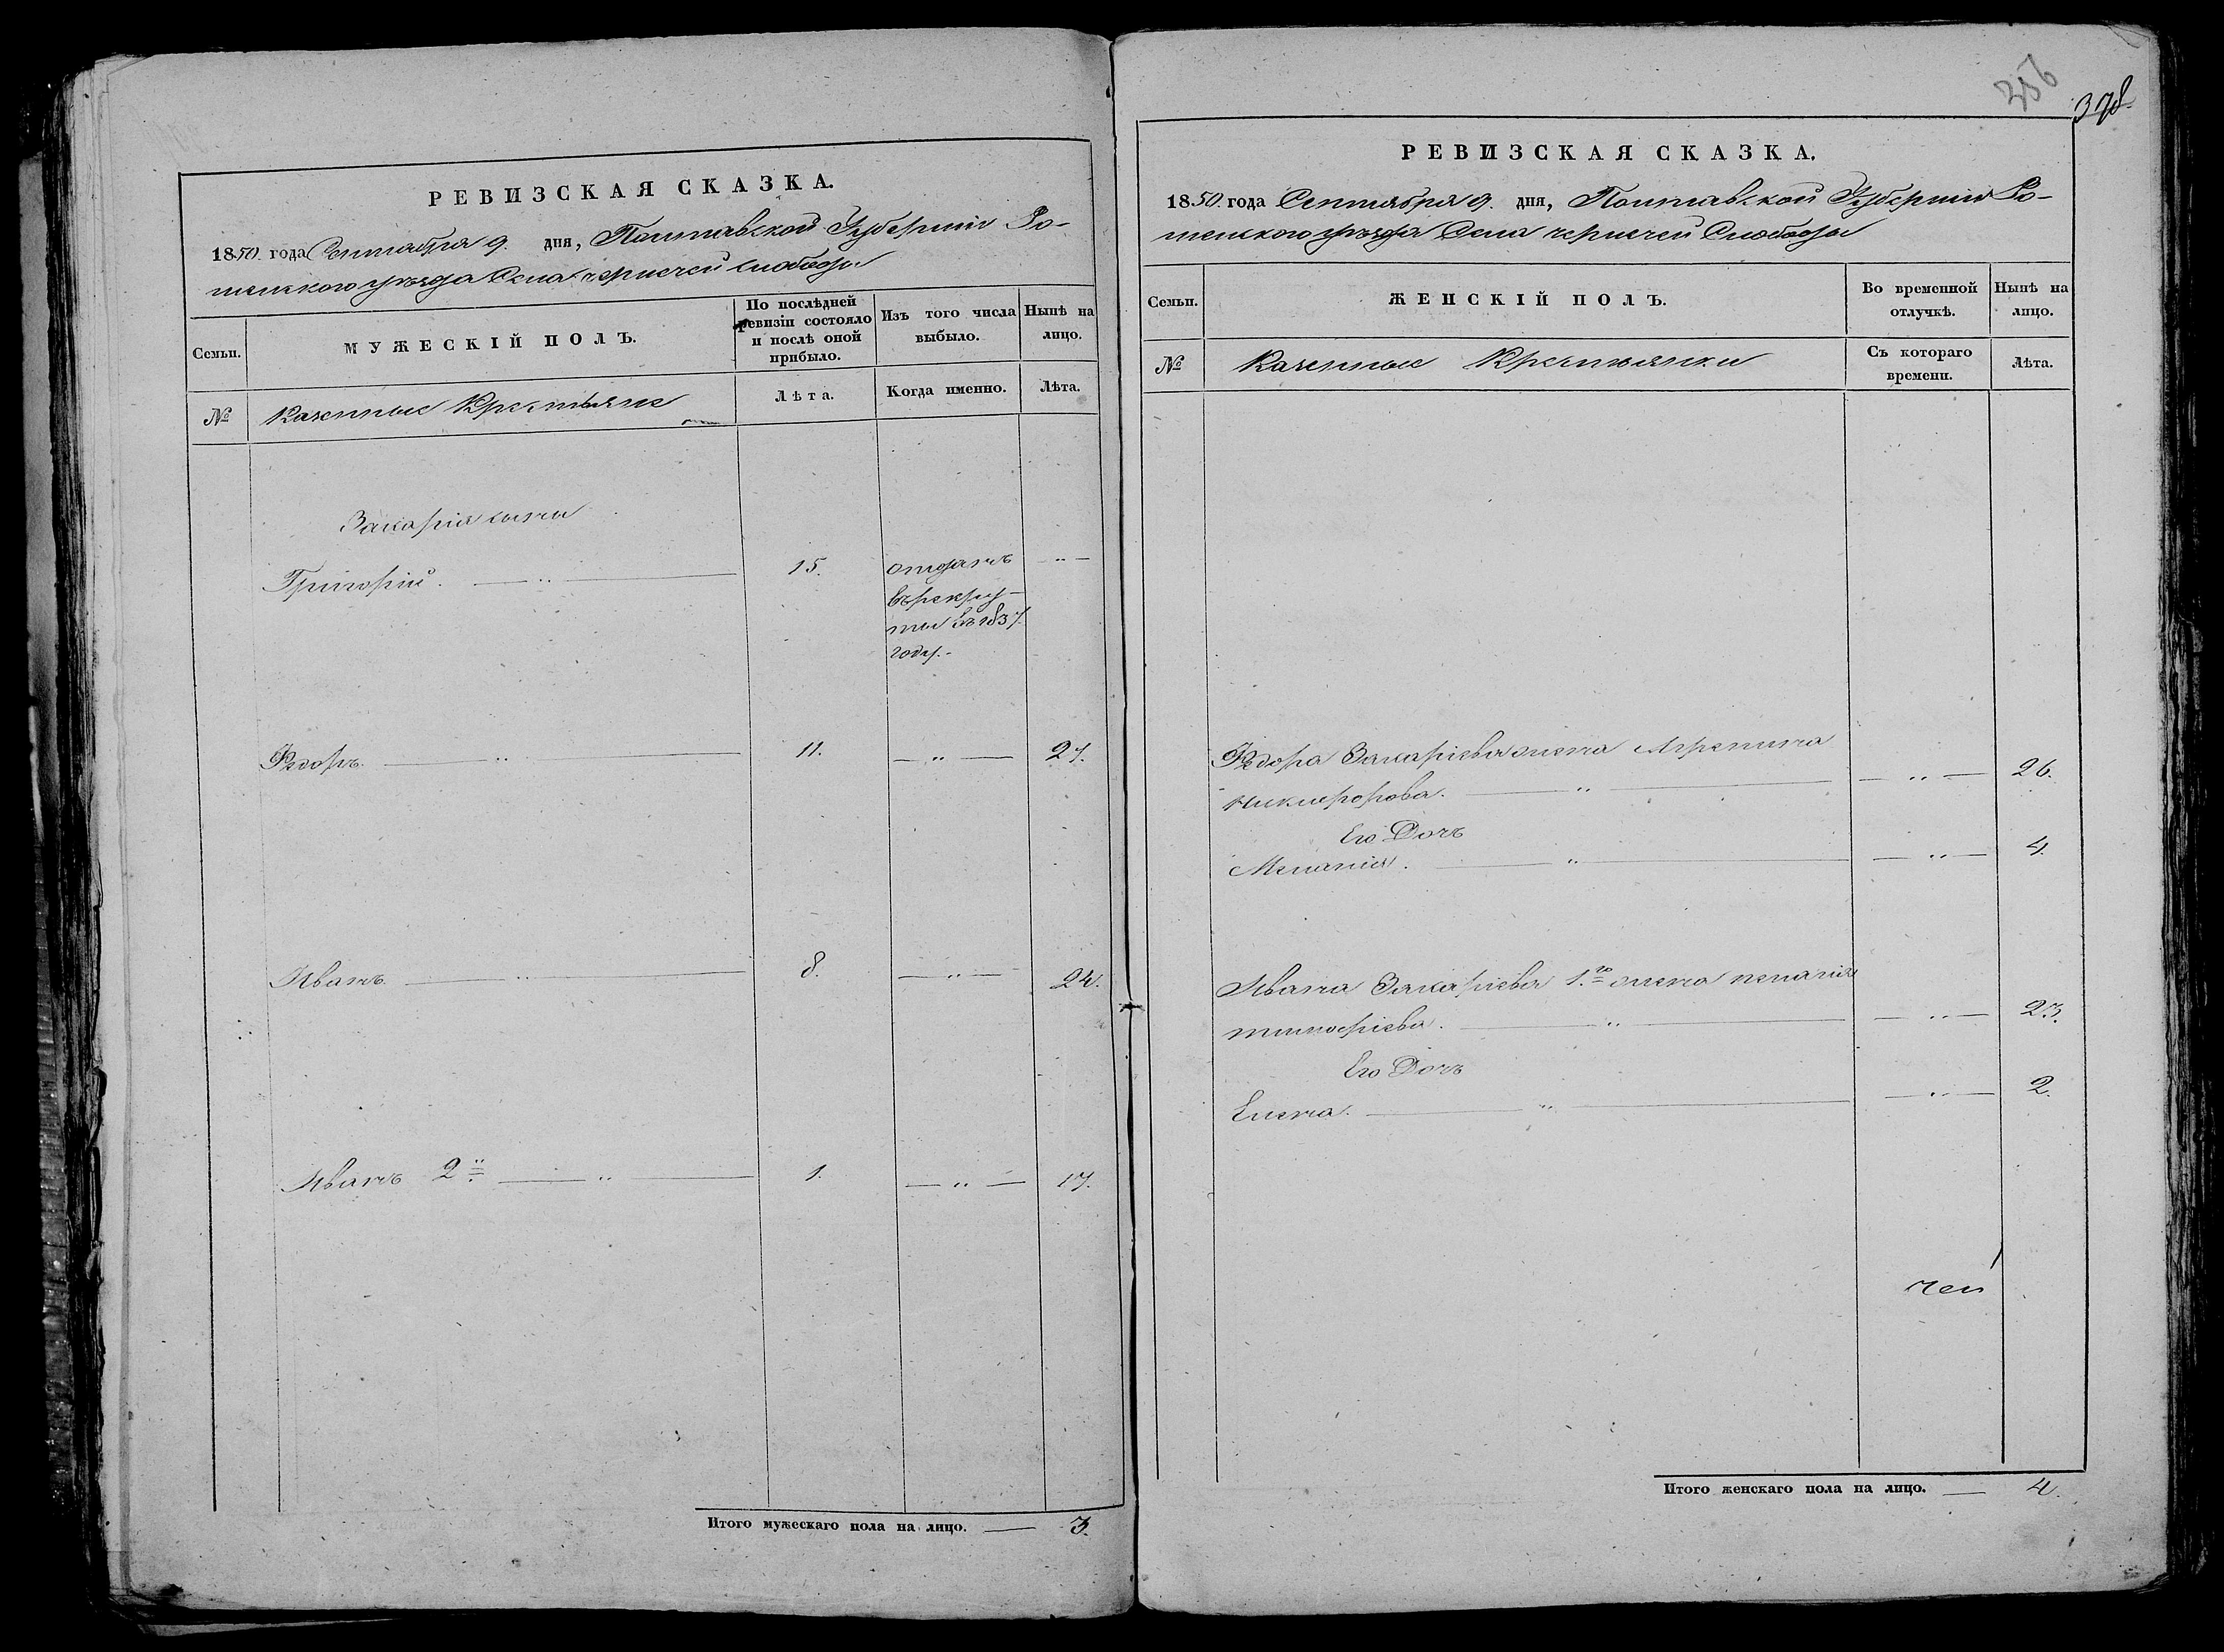 РЕВИЗСКАЯ СКАЗКА.
1850. года Сентября 9. дня, Полтавской Губерніи Ро-
менского уѣзда Села чернечей слободы
Семьи.
МУЖЕСКІЙ ПОЛЪ.
По послѣдней
ревизіи состояло
и послѣ оной
прибыло.
Изъ того числа
выбыло.
Нынѣ на
лицо.
№
Казенные Крестьяне
Лѣта.
Когда именно.
Лѣта.
Захарія сыны
Григорій. — " — 15. отданъ — " —
въ рекру-
ты въ 1837.
году.-
Ѳедоръ. — " — 11. — " — 27.
Иванъ — " — 8. — " — 24.
Иванъ 2й — " — 1. — " — 17.
Итого мужескаго пола на лицо. — 3.
256
378
РЕВИЗСКАЯ СКАЗКА.
1850. года Сентября 9. дня, Полтавской Губерніи Ро-
менского уѣзда Села чернечей Слободы
Семьи.
ЖЕНСКІЙ ПОЛЪ.
Во временной
отлучкѣ.
Нынѣ на
лицо.
№
Казенные Крестьянки
Съ котораго
времени.
Лѣта.
Ѳедора Захаріева жена Агрепина
никифорова. — " — — " — 26.
Его Дочь
Меланія. — " — — " — 4.
Ивана Захаріева 1.го жена пелагія
тимофіева. — " — — " — 23.
Его Дочь
Елена. — " — — " — 2.
чей
Итого женскаго пола на лицо. — 4.